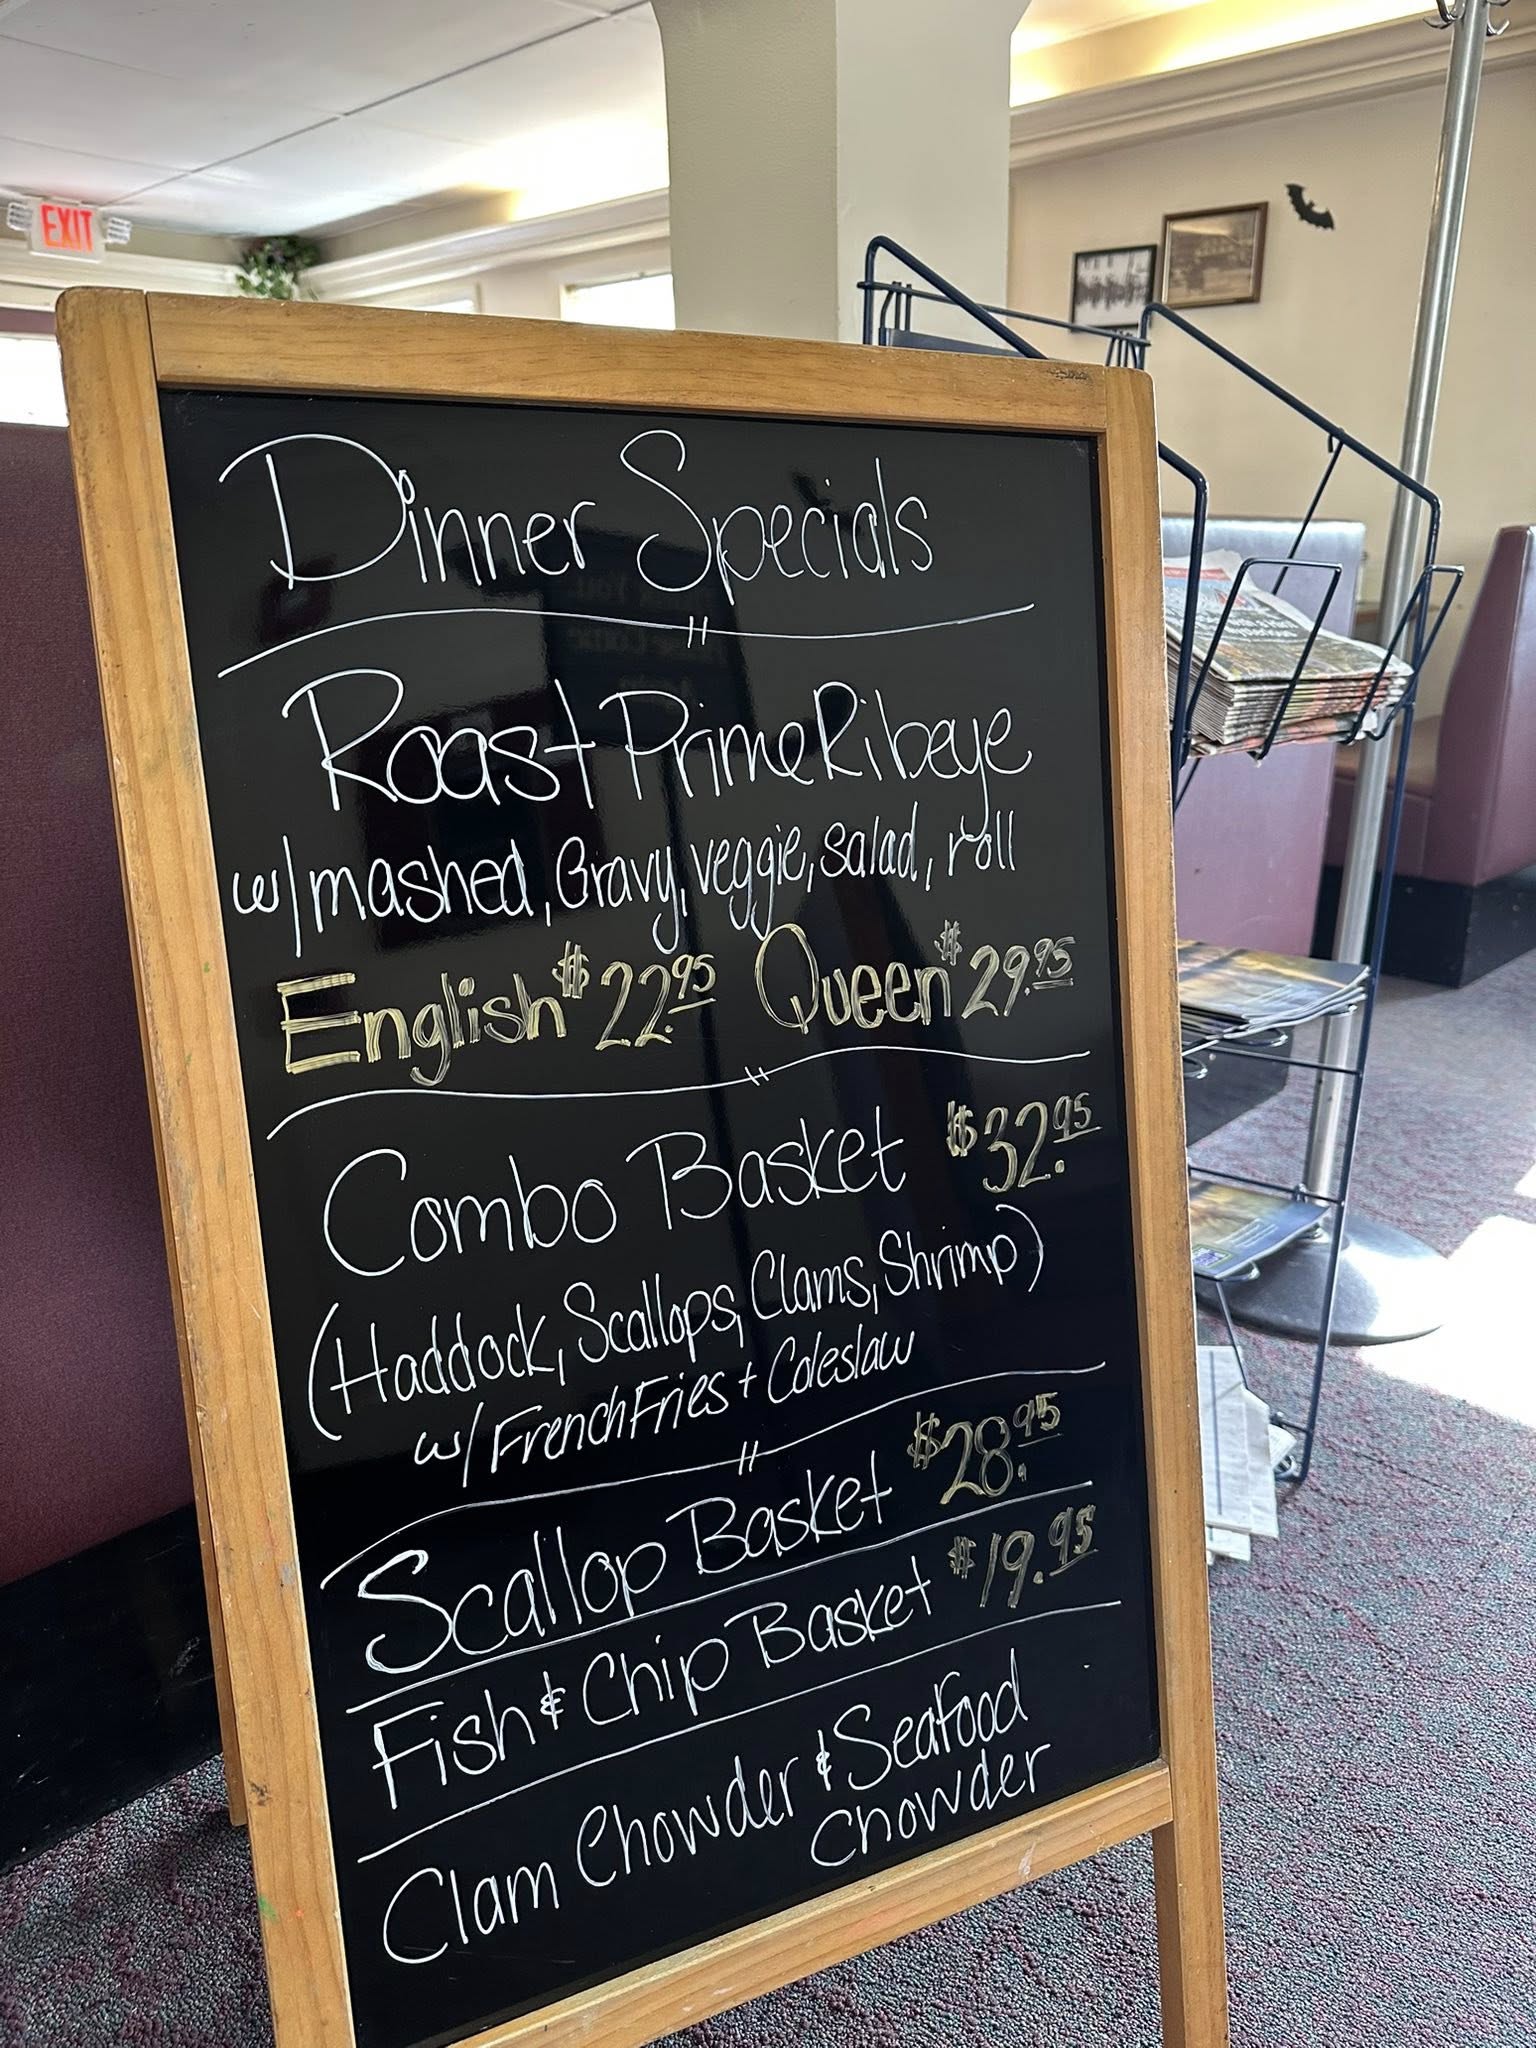 EXIT
Dinner Specials
Roast Prime Ribeye
w/ mashed, Gravy, veggie, salad, roll
English $22.95 Queen $29.95
Combo Basket $32.95
(Haddock, Scallops, Clams, Shrimp)
w/ French Fries + Coleslaw
Scallop Basket $28.95
Fish & Chip Basket $19.95
Clam Chowder & Seafood
Chowder